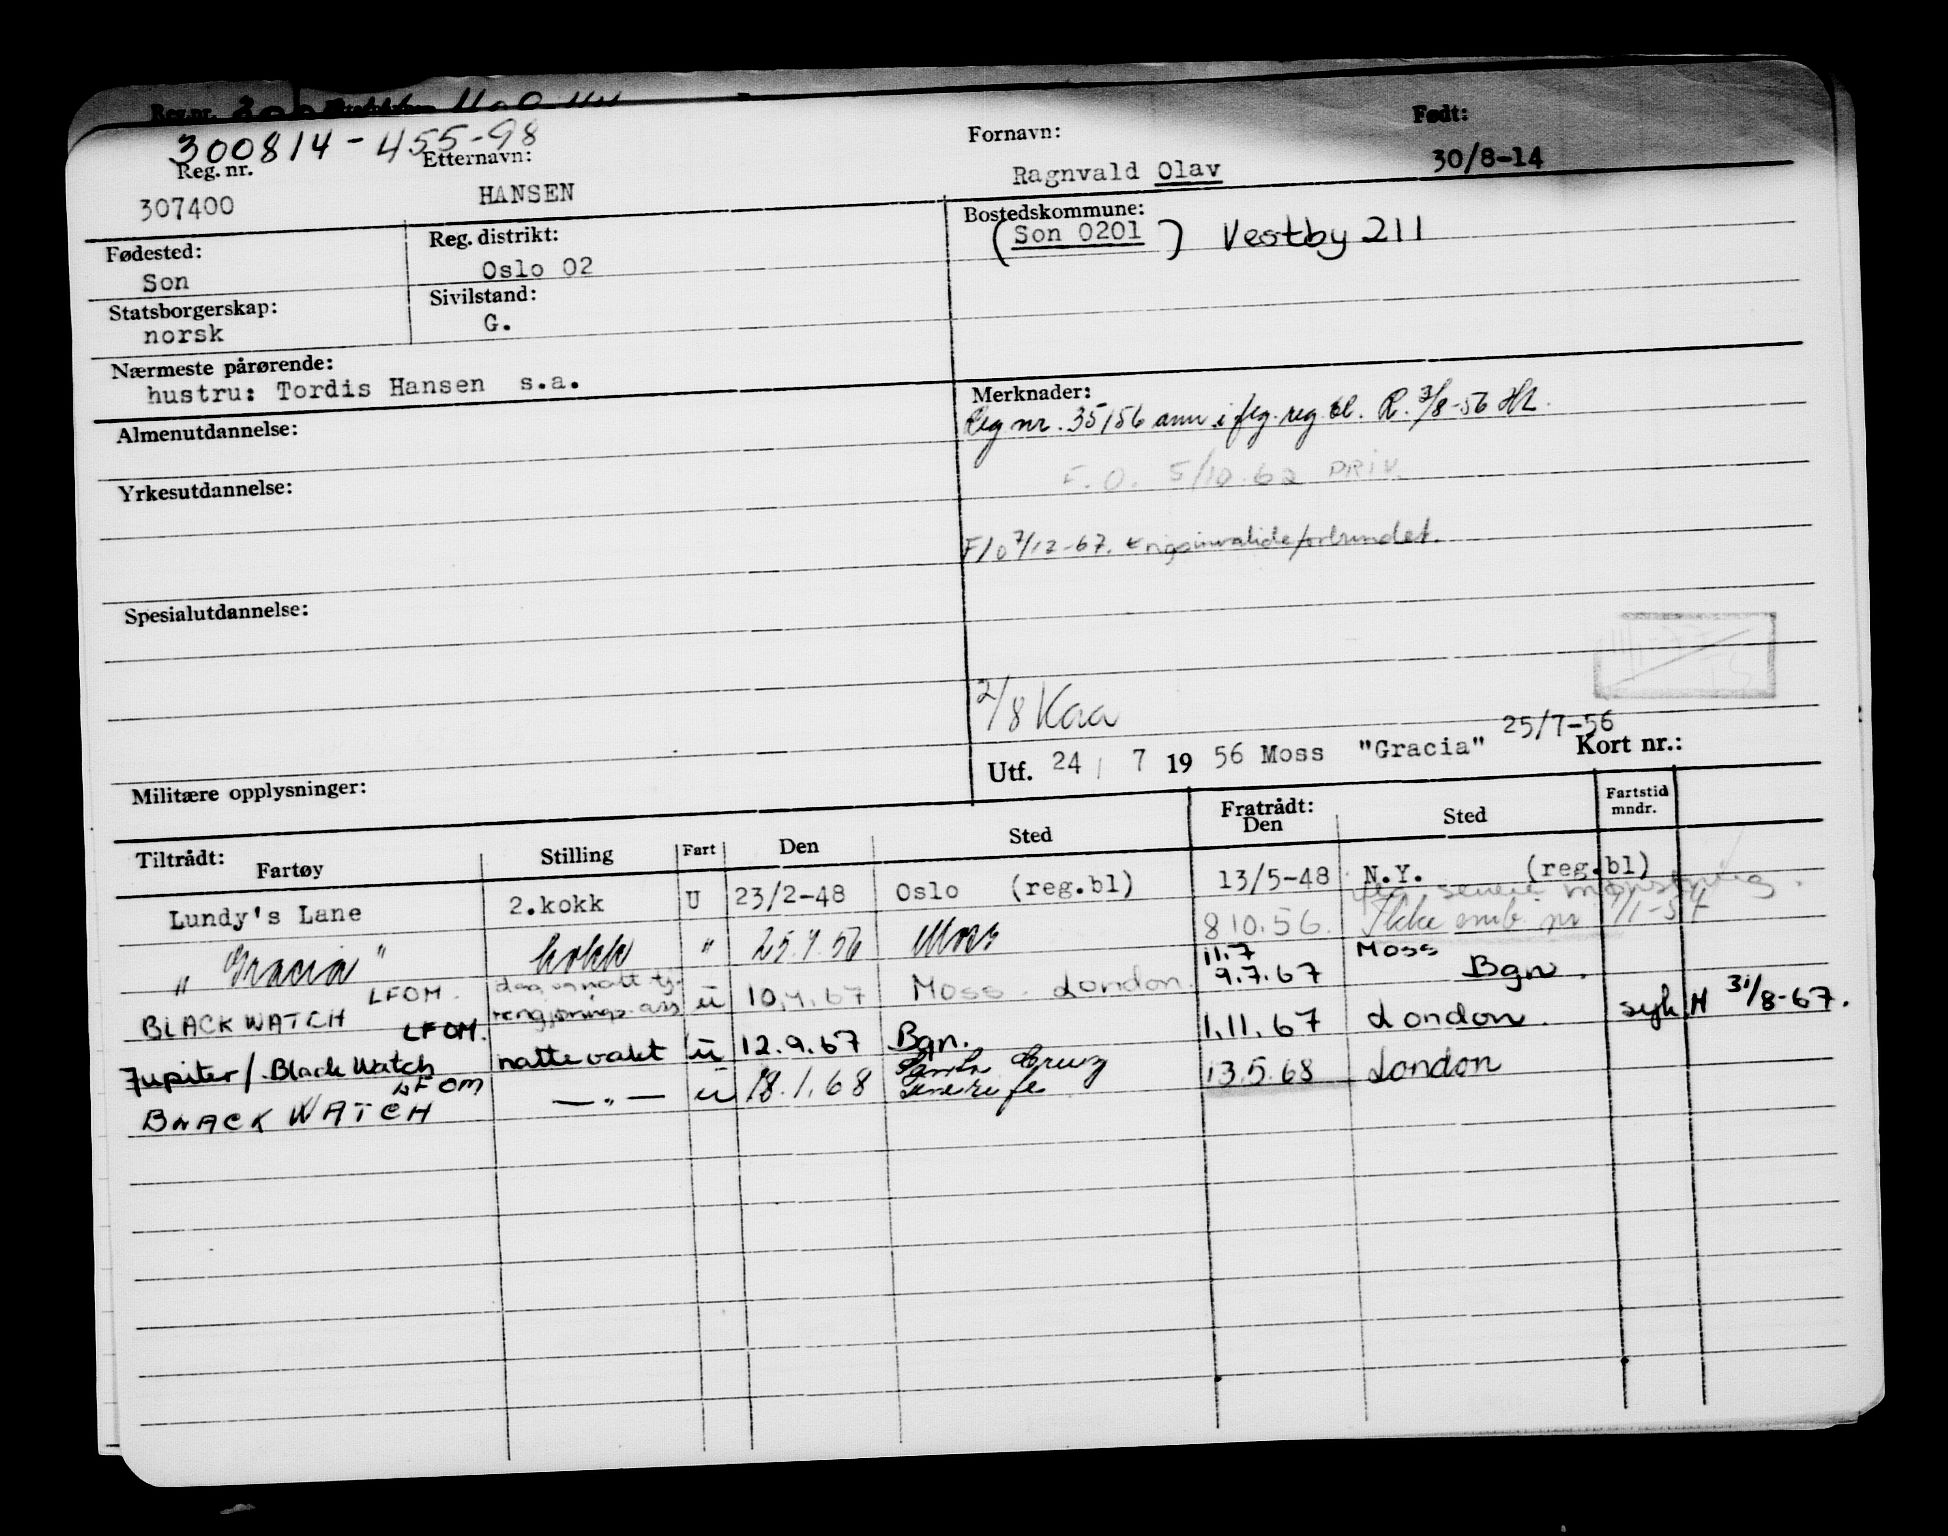 300814-455-98
Reg. nr. Etternavn: Fornavn: Født:
307400 HANSEN Ragnvald Olav 30/8-14
Fødested: Reg. distrikt: Bostedskommune:
Son Oslo 02 (Son 0201) Vestby 211
Statsborgerskap: Sivilstand:
norsk G.
Nærmeste pårørende:
hustru: Tordis Hansen s.a.
Merknader:
Reg nr. 35156 ann i feg. reg. bl. R. 3/8-56 HL.
Almenutdannelse:
F.O. 5/10.62 PRIV.
Yrkesutdannelse:
F/o 7/12-67. Krigsinvalideforbundet.
Spesialutdannelse:
2/8 Kaa
Utf. 24 / 7 19 56 Moss "Gracia" 25/7-56 Kort nr.:
Militære opplysninger:
Tiltrådt: Fratrådt: Fartstid mndr.
Fartøy Stilling Fart Den Sted Den Sted
Lundy's Lane 2.kokk U 23/2-48 Oslo (reg.bl) 13/5-48 N.Y. (reg.bl)
senere mønstring.
" Gracia " kokk " 25.7.56 Moss 8 10.56. Ikke omb.
11.7 Moss
BLACK WATCH LFOM. dag og natt tj. rengjørings ass ü 10.4.67 Moss - London 9.7.67 Bgn.
Jupiter/Black Watch LFOM. nattevakt ü 12.9.67 Bgn. 1.11.67 London. syk H 31/8-67.
BLACK WATCH LFOM — " — ü 18.1.68 Santa Cruz Tenerife 13.5.68 London